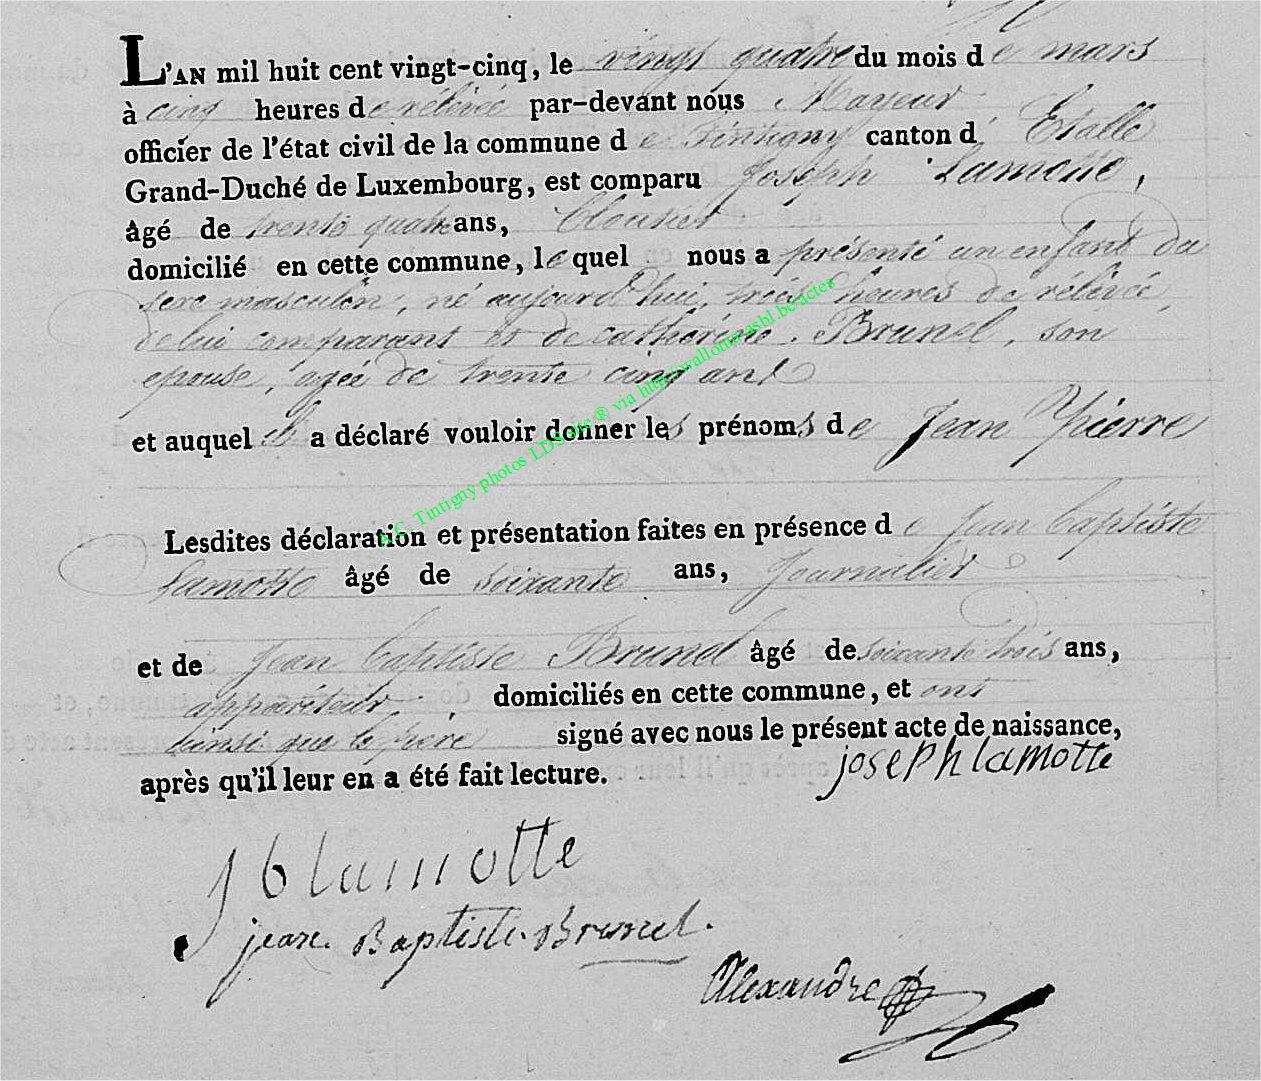 L'AN mil huit cent vingt-cinq, le vingt quatre du mois de mars
à cinq heures de rélévée par-devant nous Mayeur
officier de l'état civil de la commune de Tintigny canton d'Etalle
Grand-Duché de Luxembourg, est comparu Joseph Lamotte,
âgé de trente quatre ans, Cloutier
domicilié en cette commune, lequel nous a présenté un enfant du
sexe masculin, né aujourd'hui, trois heures de rélévée,
de lui comparant et de catherine Brunel, son
epouse, agée de trente cinq ans
et auquel il a déclaré vouloir donner les prénoms de Jean Pierre
Lesdites déclaration et présentation faites en présence de Jean baptiste
Lamotte âgé de soixante ans, Journalier
et de Jean baptiste Brunel âgé de soixante trois ans,
appariteur domiciliés en cette commune, et ont
ainsi que le père signé avec nous le présent acte de naissance,
après qu'il leur en a été fait lecture. joseph lamotte
J b lamotte
jean Baptiste Brunel.
Alexandre
A.C. Tintigny photos LDS dito ® via http://wallonia-asbl.be/actes